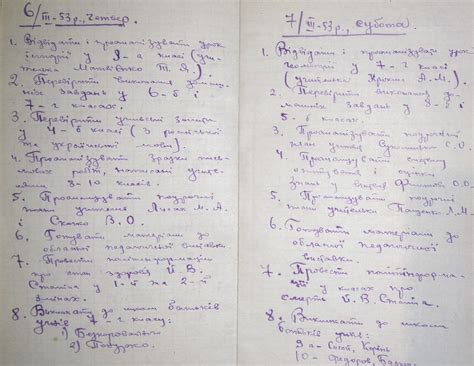 6/III-53 р., Четвер.
1. Відвідати і проаналізувати урок
історії у 9-а класі (учи-
телька Матвієнко Т. Я.)
2. Перевірити виконання домаш-
ніх завдань у 6-б і
7-г класах.
3. Перевірити учнівські зошити
у 4-б класі (з російської
та української мови).
4. Проаналізувати зразки пись-
мових робіт, написані учня-
ми 8-10 класів.
5. Проаналізувати поурочні
плани учителів М. А.
і Скочко В. О.
6. Готувати матеріали до
обласної педагогічної виставки.
7. Провести політінформацію
про стан здоров'я Й. В.
Сталіна у 1-й та 2-й
змінах.
8. Викликати до школи батьків
учнів 7-г класу:
1)
2)
7/III-53 р., субота.
1. Відвідати і проаналізувати урок
геометрії у 7-г класі
(учителька А. М.).
2. Перевірити виконання до-
машніх завдань у 8-
5-б класах.
3. Проаналізувати поурочні
план учителя О. О.
4. Проаналізувати систему
опитування і оцінки
знань у вчителя О. О.
5. Проаналізувати поурочні
плани учительки Пащенко Л. М.
6. Готувати матеріали до
обласної педагогічної
виставки.
7. Провести політінформа-
ції у класах про
смерть Й. В. Сталіна.
8. Викликати до школи
батьків учнів:
9 а -
10 - Федоров,